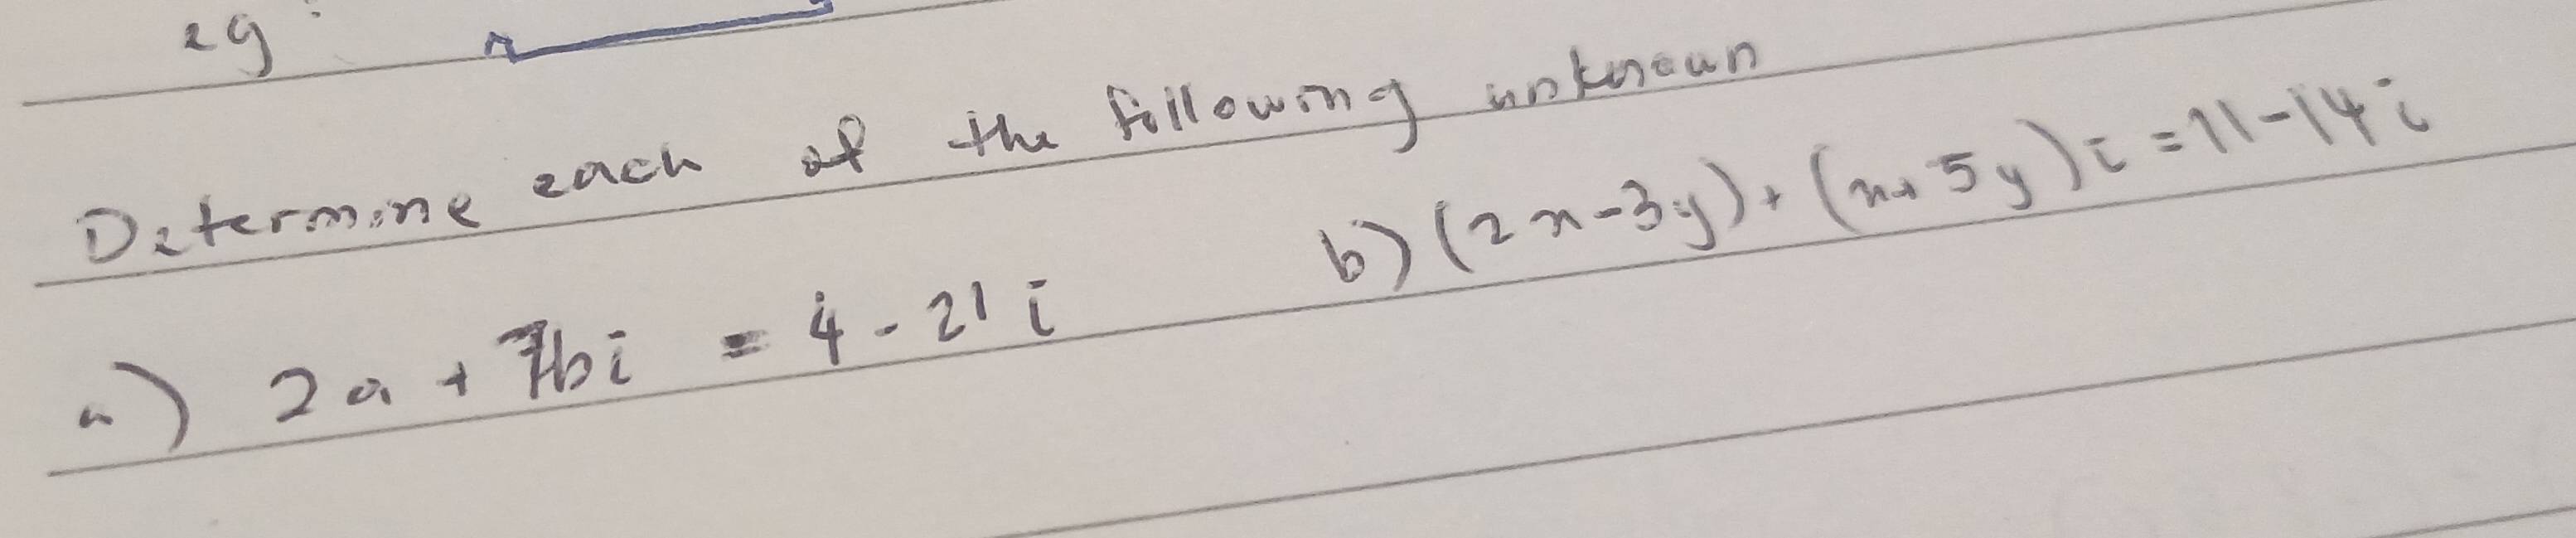 eg:
Determine each of the following unknown
a) 2a + 7bi = 4 - 21i b) (2x-3y) + (x+5y)i = 11-14i